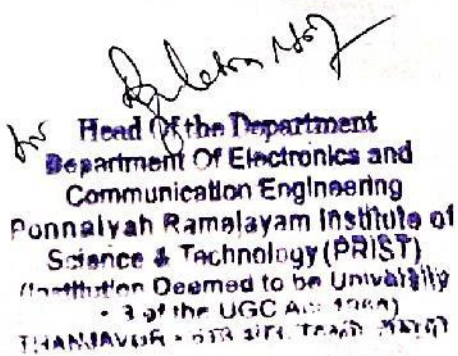 for
Head Of the Department
Department Of Electronics and
Communication Engineering
Ponnaiyah Ramajayam Institute of
Science & Technology (PRIST)
(Institution Deemed to be University
3 of the UGC Act 1956)
THANJAVUR -